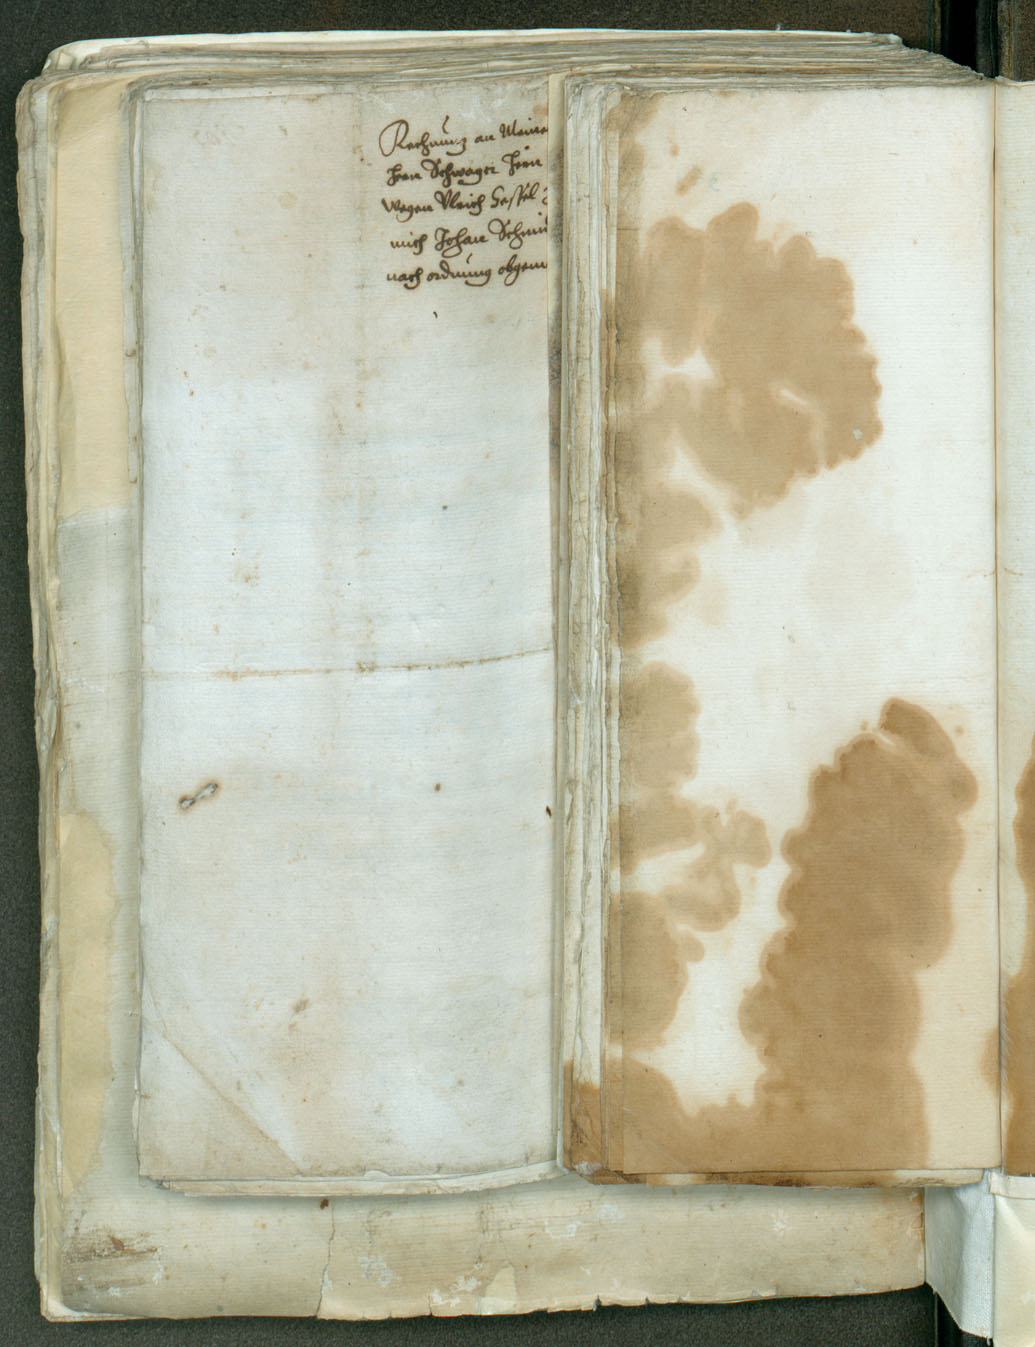 Rechnung an Meine
herrn Schwager Herrn
wegen Ulrich Hessel
mich Johan Schmi
nach ordnung obgem